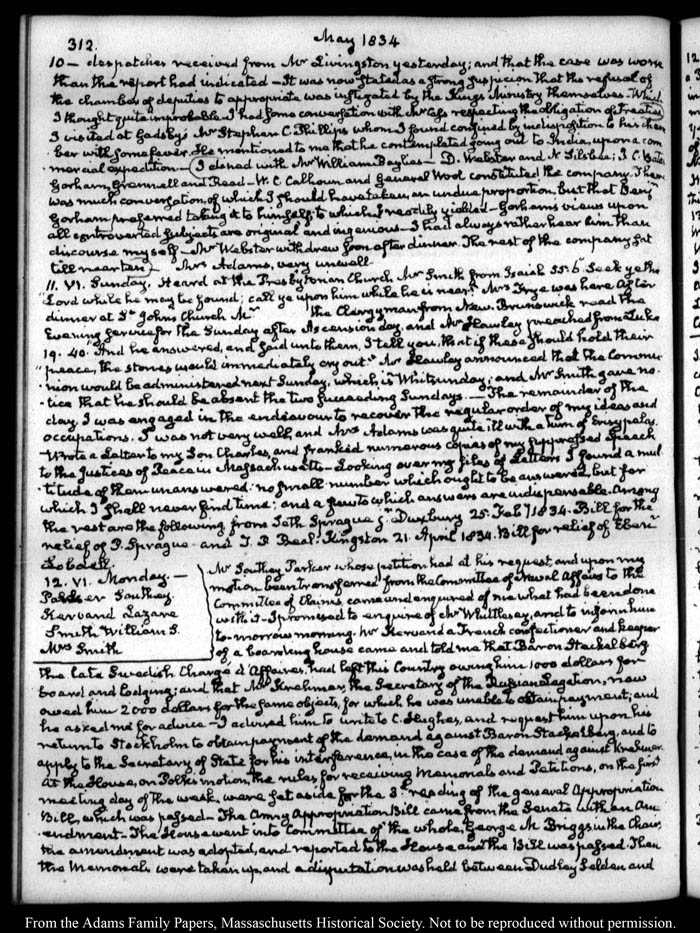 312.
May 1834
10 — despatches received from Mr Livingston yesterday; and that the case was worse
than the report had indicated — It was now stated as a strong suspicion that the refusal of
the chamber of deputies to appropriate was instigated by the Kings Ministry themselves — Which
I thought quite improbable. I had some conversation with Mr Cass respecting the obligation of treaties
I visited at Gadsby's Mr Stephen C. Phillips whom I found confined by indisposition to his cham
ber with some fever. He mentioned to me that he contemplated going out to India, upon a com
mercial expedition — I dined with Mr William Baylies — D. Webster and N. Silsbee; I. C. Bates
Gorham, Grennell and Reed — W. C. Calhoun and General Wool constituted the company. There
was much conversation, of which I should have taken an undue proportion, but that Benjn
Gorham preferred taking it to himself; to which I readily yielded — Gorham's views upon
all controverted subjects are original and ingenious — I had always rather hear him than
discourse myself — Mr Webster withdrew soon after dinner. The rest of the company sat
till near ten — Mrs Adams, very unwell
11. VI. Sunday, Heard at the Presbyterian Church Mr Smith from Isaiah 55. 6 Seek ye the
"Lord while he may be found; call ye upon him while he is near." Mrs Frye was here after
dinner at St Johns Church Mr the Clergyman from New Brunswick read the
Evening service for the Sunday after Ascension day, and Mr Hawley preached from Luke
19. 40. And he answered, and said unto them, I tell you, that if these should hold their
"peace, the stones would immediately cry out." Mr Hawley announced that the Commu
nion would be administered next Sunday, which is Whitsunday; and Mr Smith gave no
tice that he should be absent the two succeeding Sundays. — The remainder of the
day I was engaged in the endeavour to recover the regular order of my ideas and
occupations. I was not very well, and Mrs Adams was quite ill with a turn of Erysipelas.
Wrote a Letter to my Son Charles, and franked numerous copies of my suppressed speech
to the Justices of Peace in Massachusetts — Looking over my files of Letters I found a mul
titude of them unanswered: no small number which ought to be answered, but for
which I shall never find time; and a few to which answers are indispensable. Among
the rest are the following from Seth Sprague jr Duxbury 25. Feby 1834. Bill for the
relief of P. Sprague — and T. P. Beal. Kingston 21. April 1834. Bill for relief of Ebenr
Lobdell.
12. VI. Monday —
Parker Southey
Kervand Lazare
Smith William S.
Mrs Smith
Mr Southey Parker whose petition had at his request, and upon my
motion been transferred from the Committee of Naval Affairs to the
Committee of Claims, came and enquired of me what had been done
with it — I promised to enquire of Mr Whittlesey, and to inform him
to-morrow morning. Mr Kervand a French confectioner and keeper
of a boarding house came and told me that Baron Stackelberg
the late Swedish Chargé d'Affaires, had left this Country owing him 1000 dollars for
board and lodging; and that Mr Krehmer, the Secretary of the Russian Legation, now
owed him 2000 dollars for the same objects, for which he was unable to obtain payment; and
he asked me for advice — I advised him to write to C. Hughes, and request him upon his
return to Stockholm to obtain payment of the demand against Baron Stackelberg, and to
apply to the Secretary of State for his interference, in the case of the demand against Krehmer.
At the House, on Polk's motion, the rules for receiving Memorials and Petitions, on the first
meeting day of the week, were set aside for the 3d reading of the general Appropriation
Bill, which was passed — The Army Appropriation Bill came from the Senate with an Am
endment — The House went into Committee of the whole, George N. Briggs in the Chair,
the amendment was adopted, and reported to the House and the Bill was passed. Then
the Memorials were taken up, and a disputation was held between Dudley Selden and
From the Adams Family Papers, Massachusetts Historical Society. Not to be reproduced without permission.